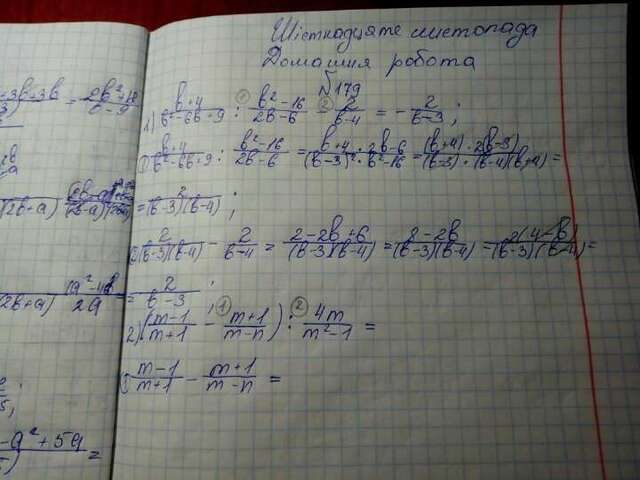 Шістнадцяте листопада
Домашня робота
№179
1) (b+4)/(b²-6b+9) : (b²-16)/(2b-6) - 2/(b-4) = -2/(b-3);
① (b+4)/(b²-6b+9) : (b²-16)/(2b-6) = (b+4)/(b-3)² · (2b-6)/(b²-16) = (b+4)·2(b-3)/(b-3)·(b-4)(b+4) =
= 2/(b-3)(b-4);
② 2/(b-3)(b-4) - 2/(b-4) = (2-2b+6)/(b-3)(b-4) = (8-2b)/(b-3)(b-4) = 2(4-b)/(b-3)(b-4) =
= 2/(b-3);
2) ((m-1)/(m+1) - (m+1)/(m-n)) : 4m/(m²-1) =
① (m-1)/(m+1) - (m+1)/(m-n) =
-a²+5a